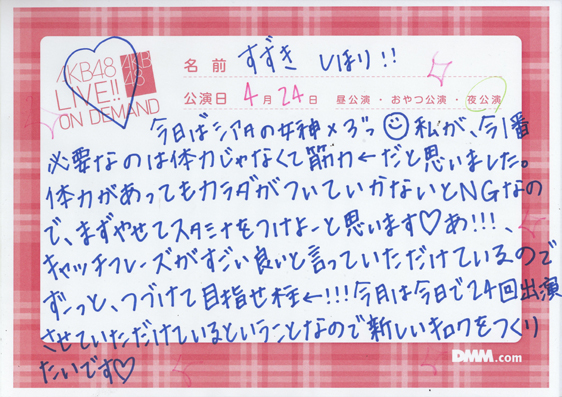 AKB48 LIVE!! ON DEMAND
AKB48
名前 すずき しほり!!
公演日 4月24日 昼公演・おやつ公演・夜公演
今日はシアタの女神×3"っ 私が、今1番
必要なのは体力じゃなくて筋力←だと思いました。
体力があってもカラダがついていかないとNGなの
で、まずやせてスタミナをつけよーと思います♡あ!!!、
キャッチフレーズがすごい良いと言っていただけているので
ずーっと、つづけて目指せ柱←!!!今月は今日で24回出演
させていただけているということなので新しいキロクをつくり
たいです♡
DMM.com